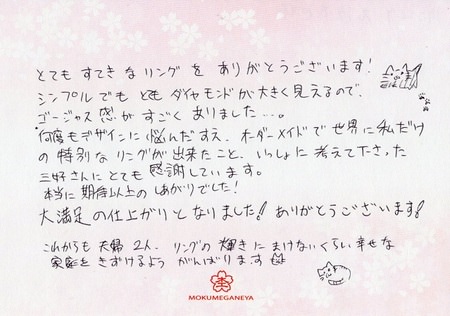 とてもすてきなリングをありがとうございます!
シンプルでもとてもダイヤモンドが大きく見えるので、
ゴージャス感がすごくありました…。
何度もデザインに悩んだすえ、オーダーメイドで世界に私だけ
の特別なリングが出来たこと、いっしょに考えて下さった
三好さんにとても感謝しています。
本当に期待以上のしあがりでした!
大満足の仕上がりとなりました!ありがとうございます!
これからも夫婦2人、リングの輝きにまけないくらい幸せな
家庭をきずけるようがんばります
MOKUMEGANEYA